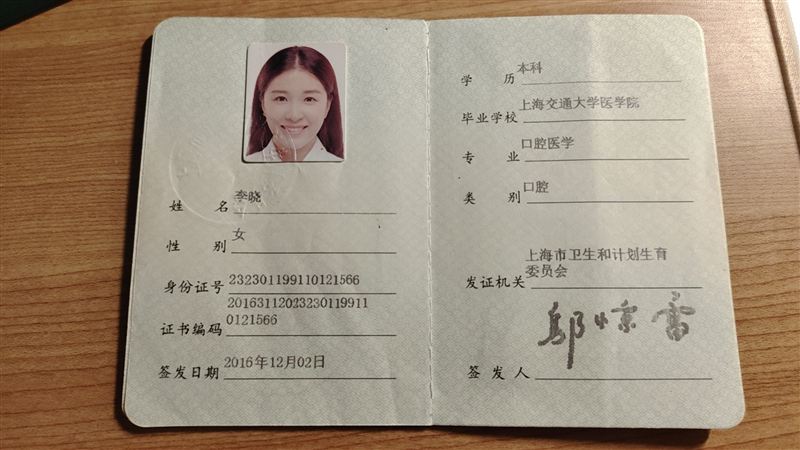 姓 名 李晓
性 别 女
身份证号 232301199110121566
20163112023230119911
证书编码 0121566
签发日期 2016年12月02日
学 历 本科
毕业学校 上海交通大学医学院
专 业 口腔医学
类 别 口腔
上海市卫生和计划生育
发证机关 委员会
签 发 人